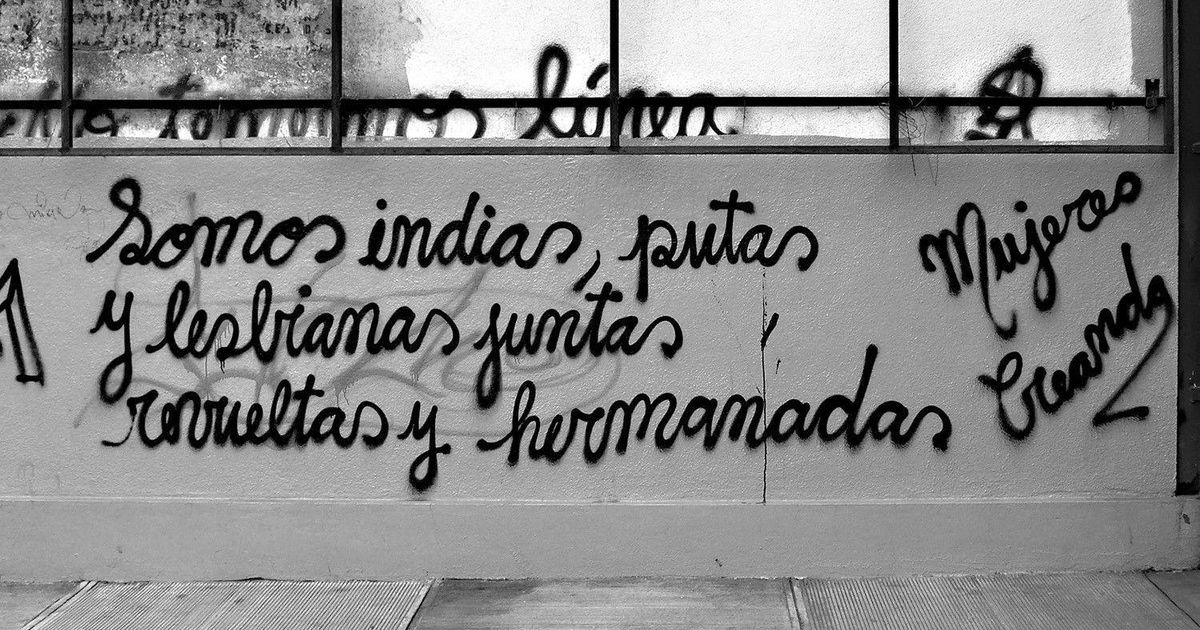 línea
Somos indias, putas
y lesbianas juntas
revueltas y hermanadas
Mujeres
Creando